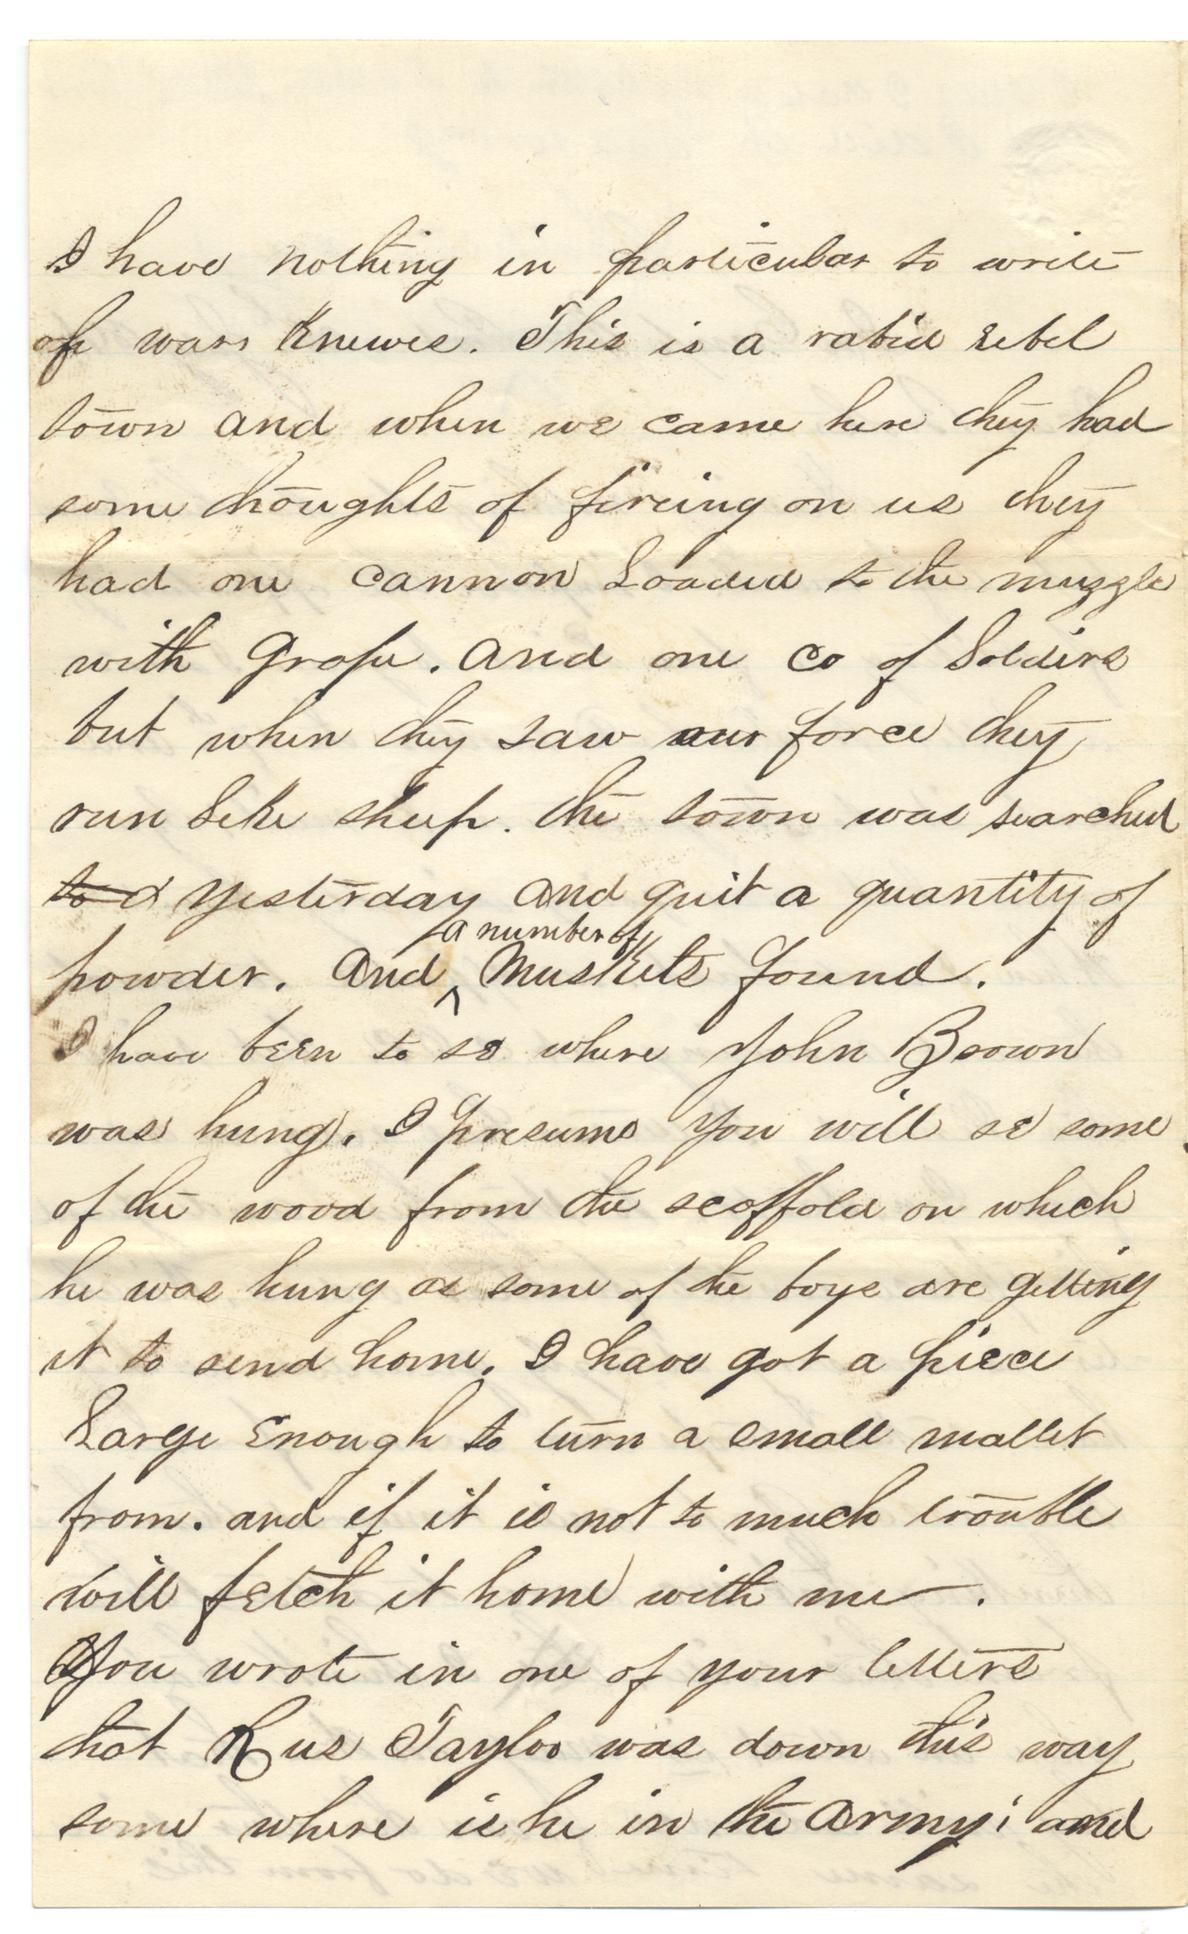 I have nothing in particular to write
of wars Knewes. This is a rabid rebel
town and when we came here they had
some thoughts of fireing on us they
had one cannon Loaded to the muzzle
with Grape. and one co of Soldirs
but when they saw our force they
run Like sheep. the town was searched
to d yesterday and quit a quantity of
a number of
powder. and ^ Muskets found.
I have been to se where John Brown
was hung. I presume you will se some
of the wood from the scaffold on which
he was hung as some of the boys are getting
it to send home. I have got a piece
Large Enough to turn a small mallet
from. and if it is not to much trouble
will fetch it home with me.
You wrote in one of your letters
that Rus Taylor was down this way
some where is he in the army; and